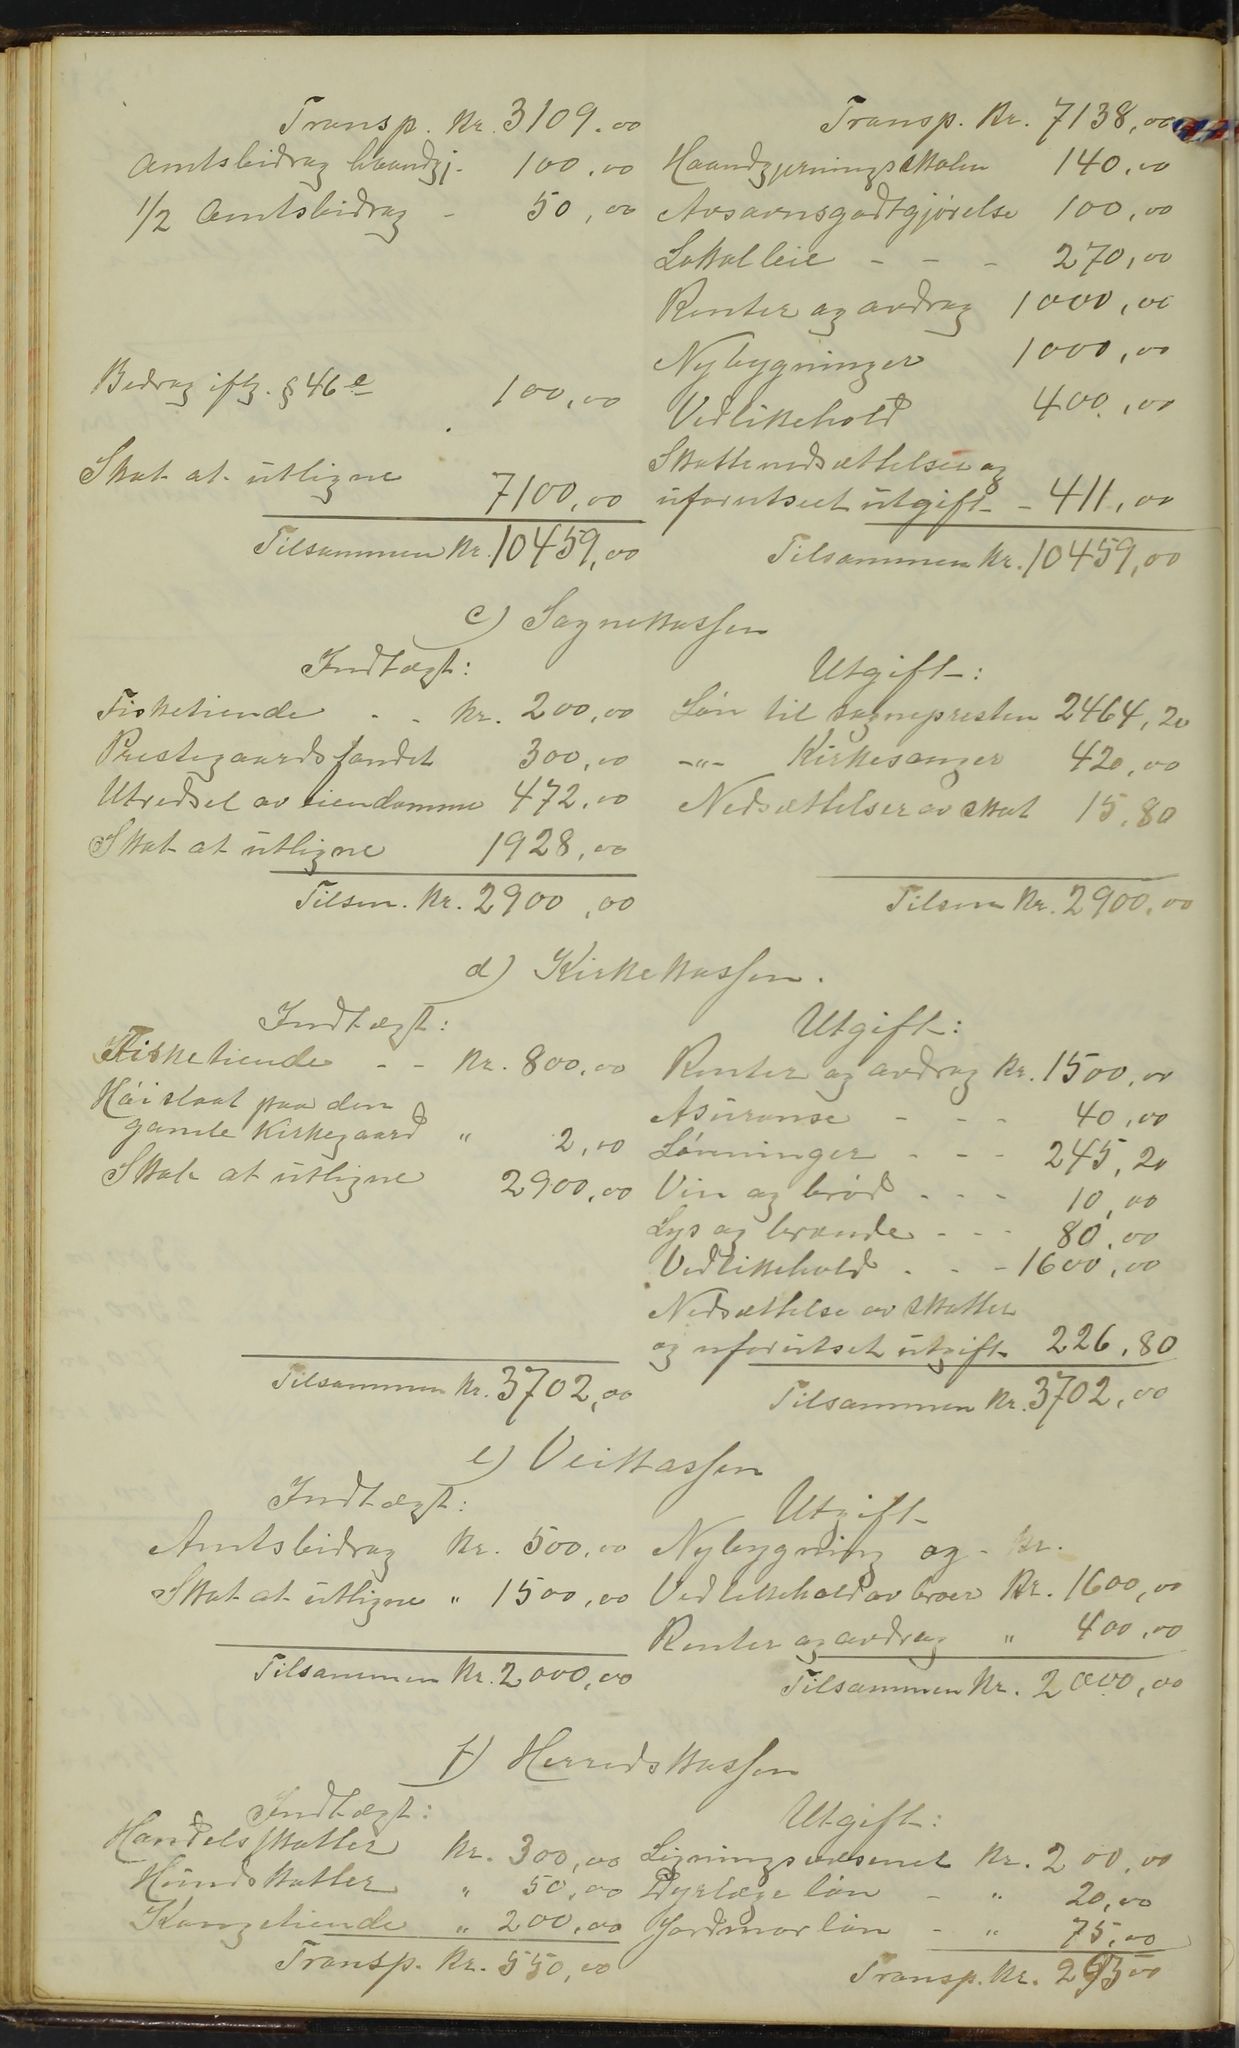 Transp. Kr. 3109.00 Transp. Kr. 7138,00
Amtsbidrag haandgj. 100,00 Haandgjerningsskolen 140,00
1/2 Amtsbidrag - 50,00 Avsavnsgodtgjörelse 100,00
Lokalleie - - - 270,00
Renter og avdrag 1000,00
Nybygninger 1000,00
Bedrag iflg. § 46 e 100,00 Vedlikehold 400,00
Skat at utligne 7100,00 Skattenedsættelser og
uforutseet utgift - 411,00
Tilsammen Kr. 10459,00 Tilsammen Kr. 10459,00
c) Sognekassen
Indtægt: Utgift:
Fisketiende - - Kr. 200,00 Løn til sognepresten 2464,20
Prestegaardsfondet 300,00 -"- Kirkesanger 420,00
Utredsel av eiendomme 472,00 Nedsættelser av skat 15,80
Skat at utligne 1928,00
Tilsm. Kr. 2900,00 Tilsm Kr. 2900,00
d) Kirkekassen.
Indtægt: Utgift:
Fisketiende - - Kr. 800,00 Renter og avdrag Kr. 1500,00
Høislaat paa den Asuranse - - - 40,00
gamle Kirkegaard " 2,00 Lønninger - - - 245,20
Skat at utligne 2900,00 Vin og brød - - - 10,00
Lys og brænde - - - 80,00
Vedlikehold - - - 1600,00
Nedsættelse av skatter
og uforutset utgift 226,80
Tilsammen Kr. 3702,00 Tilsammen Kr. 3702,00
e) Veikassen
Indtægt: Utgift
Amtsbidrag Kr. 500,00 Nybygning og - Kr.
Skat at utligne " 1500,00 Vedlikehold av broer Kr. 1600,00
Renter og avdrag " 400,00
Tilsammen Kr. 2000,00 Tilsammen Kr. 2000,00
f) Herredskassen
Indtægt: Utgift:
Handelsskatter Kr. 300,00 Ligningsvæsenet Kr. 200,00
Hundskatter " 50,00 Dyrlæge løn - " 20,00
Kongetiende " 200,00 Jordmor løn - " 75,00
Transp. Kr. 550,00 Transp. Kr. 295,00